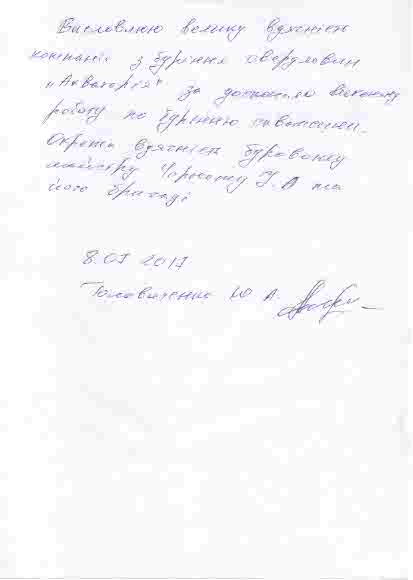 Висловлюю велику вдячність
компанії з буріння свердловин
"Акваторія" за досконало виконану
роботу по бурінню свердловини.
Окрема вдячність буровому
майстру Чорному І.А та
його бригаді
8.07 2017
Ю А.